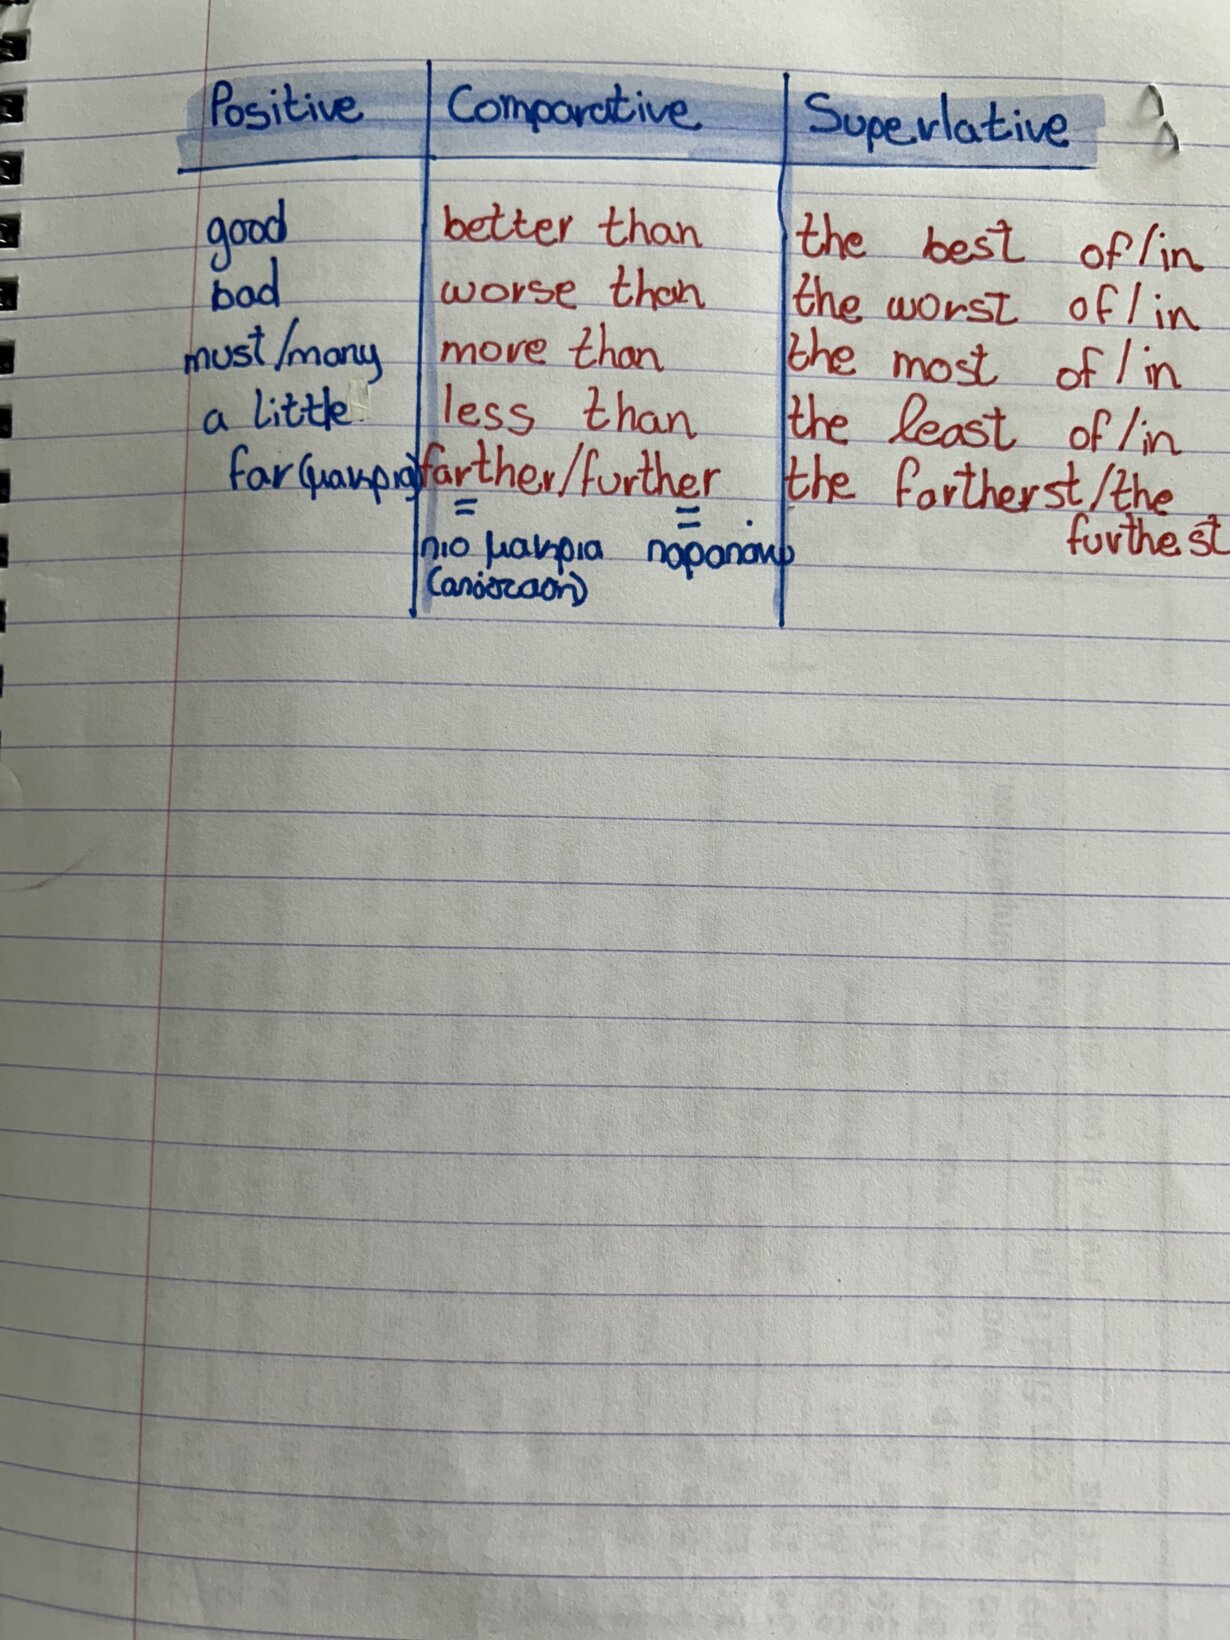 Positive Comparative Superlative
good better than the best of/in
bad worse than the worst of/in
must/many more than the most of/in
a little less than the least of/in
far (μακρια) farther/further the fartherst/the
furthest
= =
πιο μακρια παραπάνω
(απόσταση)